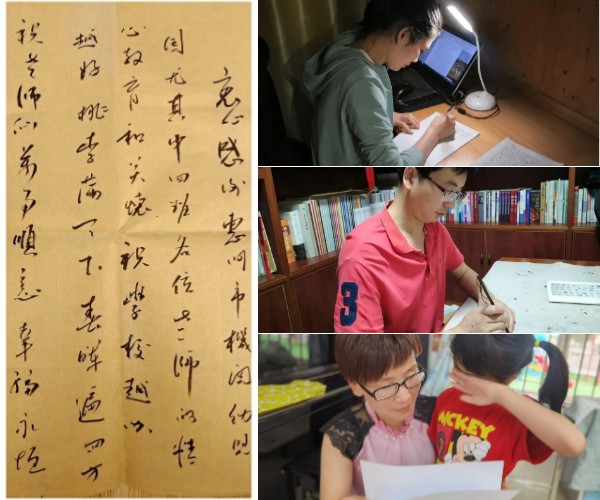 衷心感谢惠州市機関幼兒
園尤其中四班各位老師的精
心教育和关懷 祝學校越办
越好 桃李满天下 春暉遍四方
祝老师们萬事順意 幸福永恒
3
MICKEY